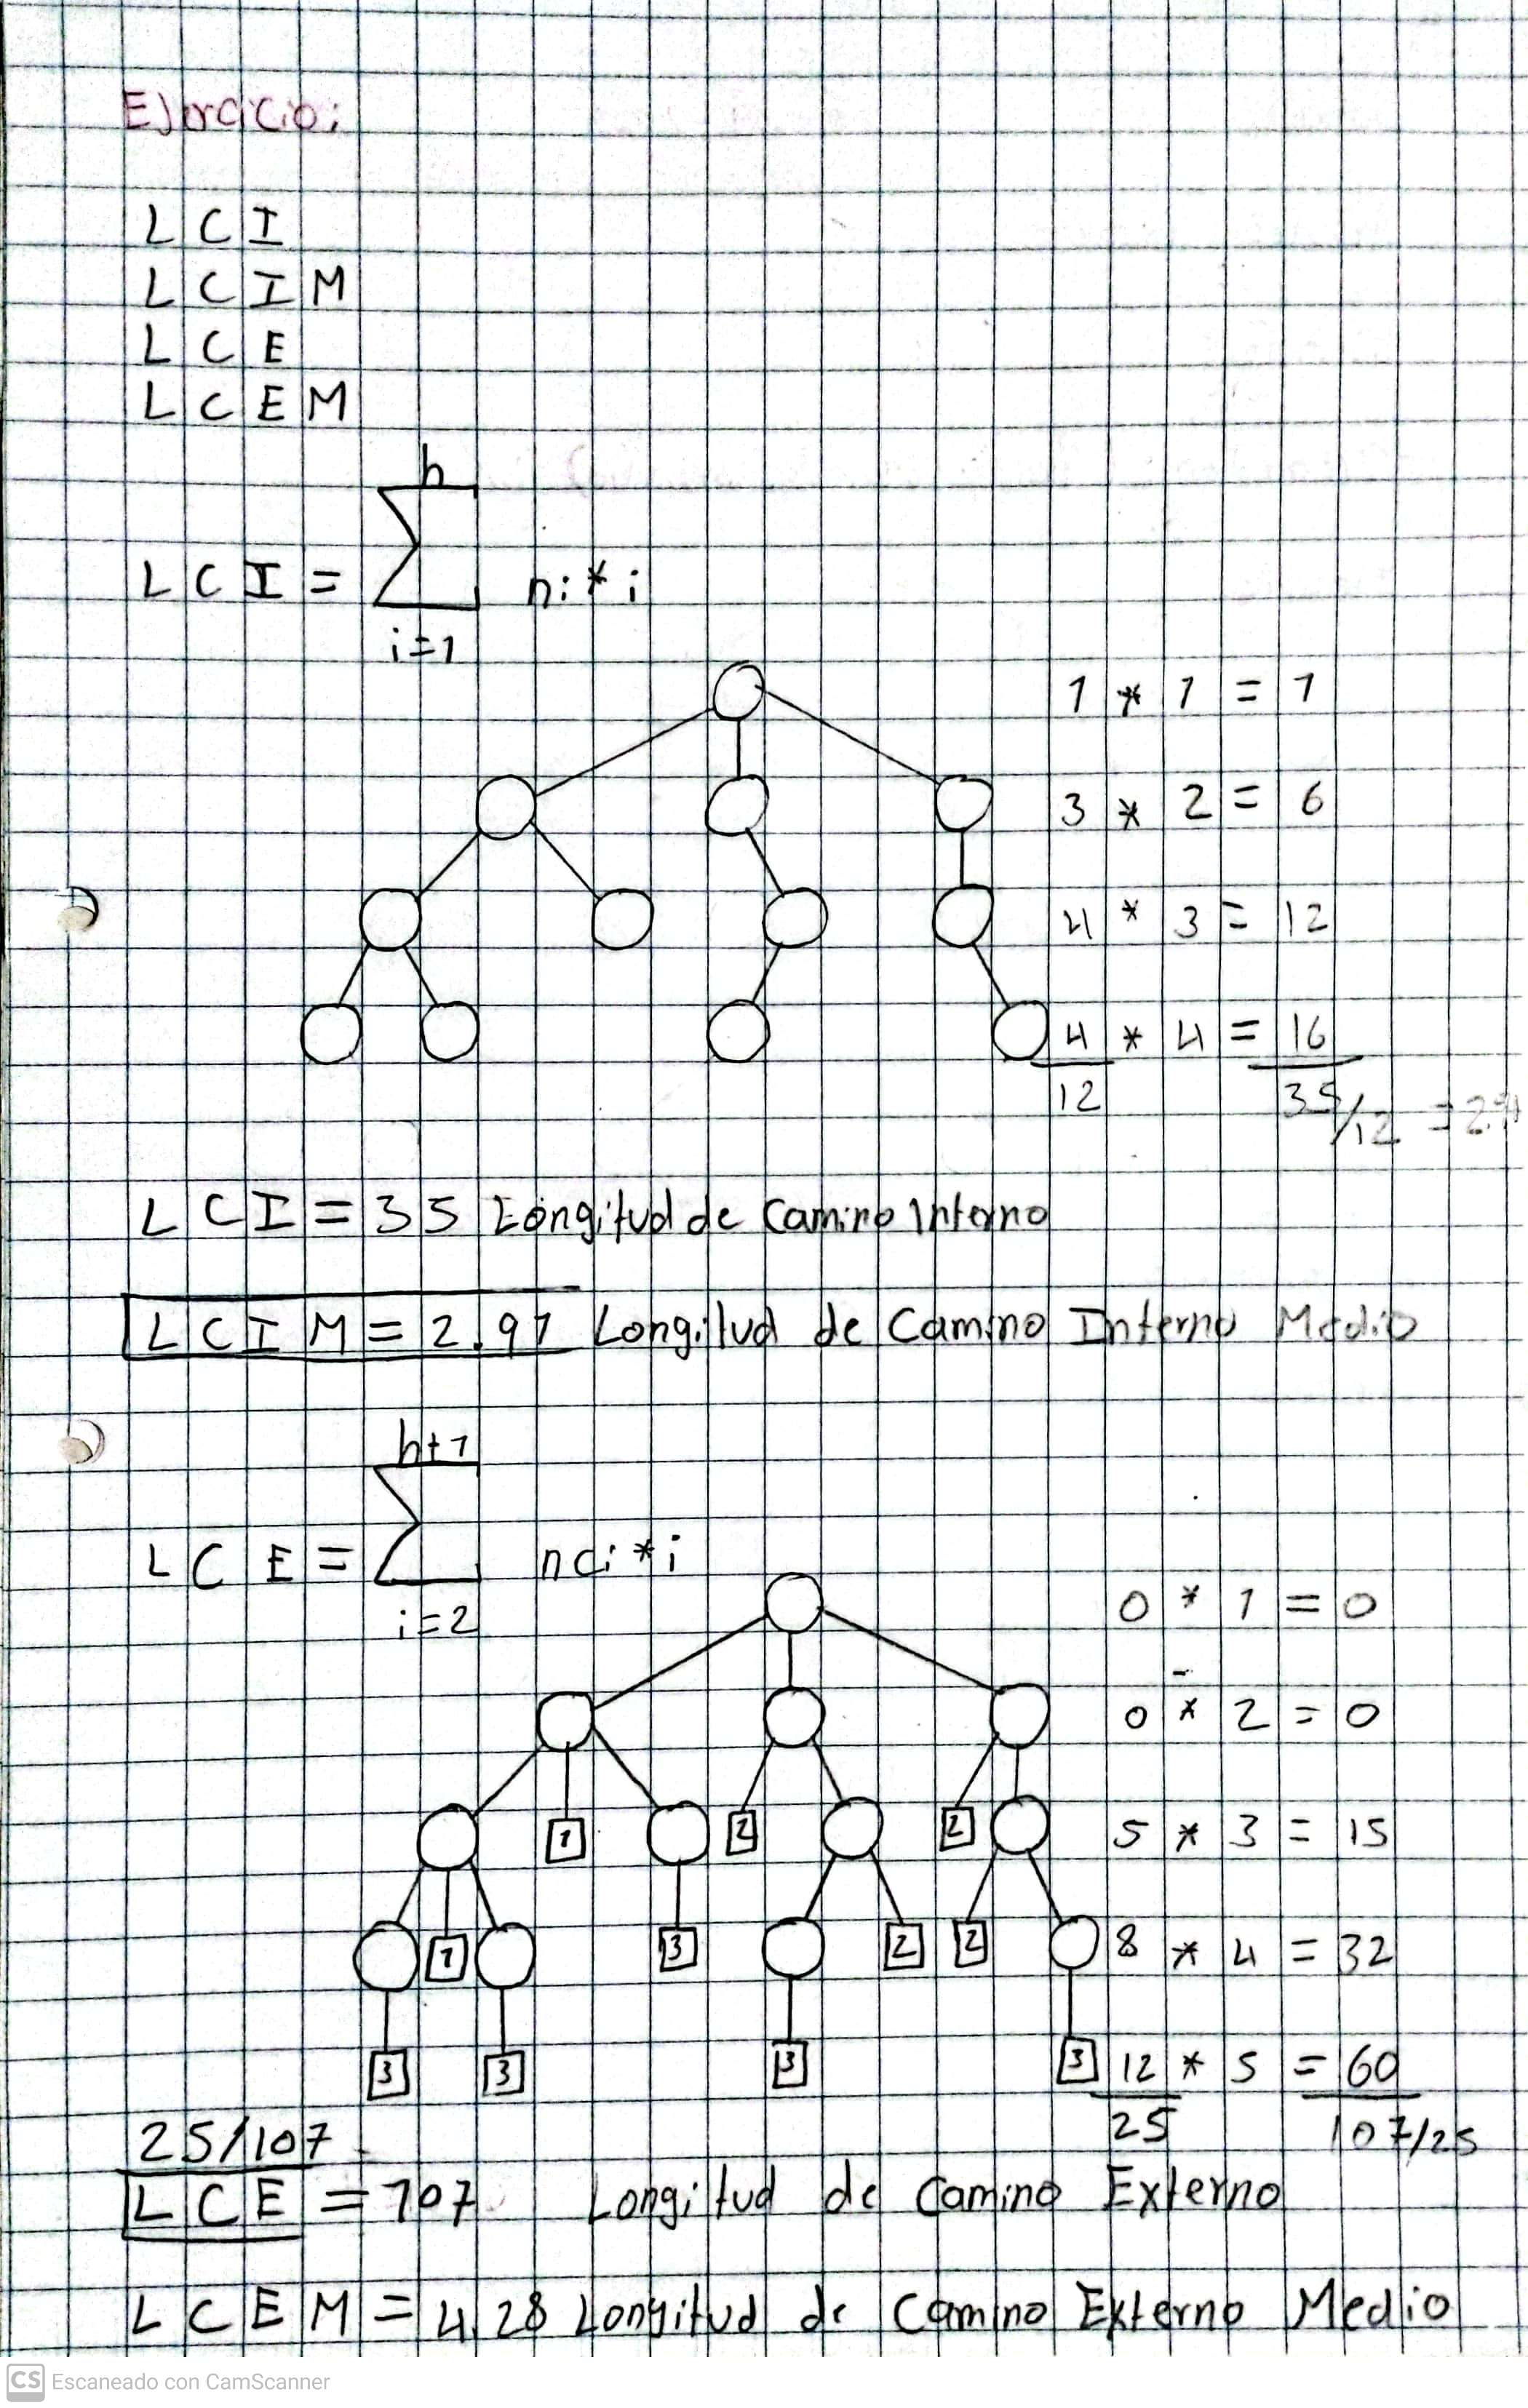 Ejercicio:
L C I
L C I M
L C E
L C E M
h
L C I = Σ ni * i
i=1
1 * 1 = 1
3 * 2 = 6
4 * 3 = 12
4 * 4 = 16
12 35/12
L C I = 35 Longitud de Camino Interno
L C I M = 2.91 Longitud de Camino Interno Medio
h+1
L C E = Σ nci * i
i=2
0 * 1 = 0
0 * 2 = 0
1 2 2 5 * 3 = 15
1 3 2 2 8 * 4 = 32
3 3 3 3 12 * 5 = 60
25 107/25
25/107
L C E = 107 Longitud de Camino Externo
L C E M = 4.28 Longitud de Camino Externo Medio
CS Escaneado con CamScanner